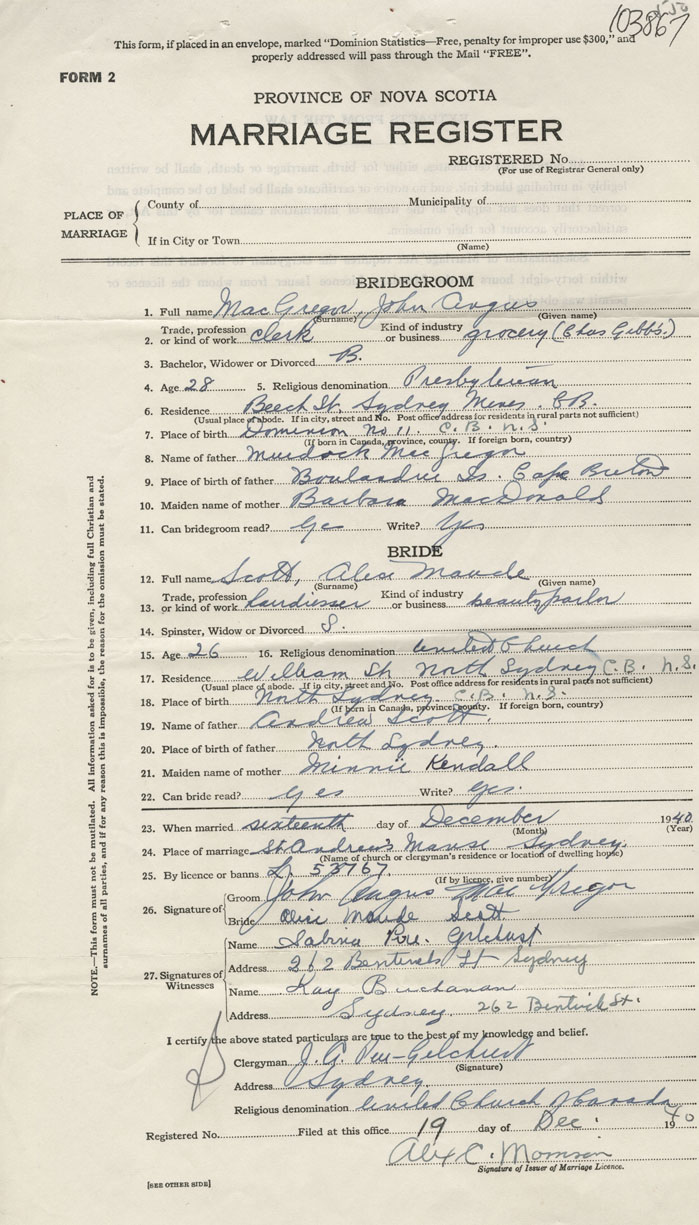 103867
This form, if placed in an envelope, marked "Dominion Statistics—Free, penalty for improper use $300," and
properly addressed will pass through the Mail "FREE".
FORM 2
PROVINCE OF NOVA SCOTIA
MARRIAGE REGISTER
REGISTERED No.
(For use of Registrar General only)
PLACE OF MARRIAGE
County of Municipality of
If in City or Town
(Name)
BRIDEGROOM
1. Full name MacGregor, John Angus
(Surname) (Given name)
2. Trade, profession or kind of work clerk Kind of industry or business grocery (Chas Gibbs.)
3. Bachelor, Widower or Divorced B.
4. Age 28 5. Religious denomination Presbyterian
6. Residence Beech St. Sydney Mines. C.B.
(Usual place of abode. If in city, street and No. Post office address for residents in rural parts not sufficient)
7. Place of birth Dominion No 11. C.B. N.S.
(If born in Canada, province, county. If foreign born, country)
8. Name of father Murdock MacGregor
9. Place of birth of father Boulardrie Is. Cape Breton
10. Maiden name of mother Barbara MacDonald
11. Can bridegroom read? Yes Write? Yes
BRIDE
12. Full name Scott, Alice Maude
(Surname) (Given name)
13. Trade, profession or kind of work hairdresser Kind of industry or business beauty parlor
14. Spinster, Widow or Divorced S.
15. Age 26 16. Religious denomination United Church
17. Residence William St North Sydney C.B. N.S.
(Usual place of abode. If in city, street and No. Post office address for residents in rural parts not sufficient)
18. Place of birth North Sydney C.B. N.S.
(If born in Canada, province, county. If foreign born, country)
19. Name of father Andrew Scott.
20. Place of birth of father North Sydney.
21. Maiden name of mother Minnie Kendall
22. Can bride read? Yes Write? Yes.
23. When married sixteenth day of December 1940
(Month) (Year)
24. Place of marriage St Andrew's Manse Sydney.
(Name of church or clergyman's residence or location of dwelling house)
25. By licence or banns L 53767
(If by licence, give number)
26. Signature of
Groom John Angus MacGregor
Bride Alice Maude Scott
27. Signatures of Witnesses
Name Sabina Gilchrist
Address 262 Bentinck St Sydney
Name Kay Buchanan
Address Sydney. 262 Bentinck St.
I certify the above stated particulars are true to the best of my knowledge and belief.
Clergyman Gilchrist
(Signature)
Address Sydney.
Religious denomination United Church of Canada
Registered No. Filed at this office 19 day of Dec. 1940
Alex C. Morrison
Signature of Issuer of Marriage Licence.
[SEE OTHER SIDE]
NOTE.—This form must not be mutilated. All information asked for is to be given, including full Christian and
surnames of all parties, and if for any reason this is impossible, the reason for the omission must be stated.